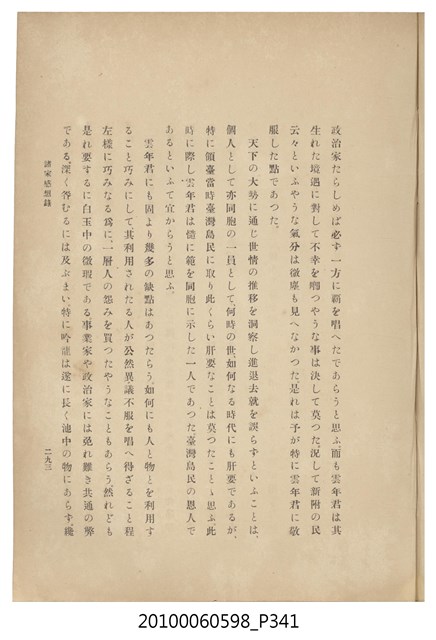 政治家たらしめば必ず一方に覇を唱へたであらうと思ふ、而も雲年君は其
生れた境遇に對して不幸を喞つやうな事は決して莫つた、況して新附の民
云々といふやうな氣分は微塵も見へなかつた、是れは予が特に雲年君に敬
服した點であつた。
天下の大勢に通じ世情の推移を洞察し進退去就を誤らずといふことは、
個人として亦同胞の一員として、何時の世、如何なる時代にも肝要であるが、
特に領臺當時臺灣島民に取り此くらい肝要なことは莫つたことゝ思ふ此
時に際し雲年君は儘に範を同胞に示した一人であつた臺灣島民の恩人で
あるといふて宜からうと思ふ。
雲年君にも固より幾多の缺點はあつたらう、如何にも人と物とを利用す
ること巧みにして其利用されたる人が公然異議不服を唱へ得ざること程
左樣に巧みなる爲に、一層人の怨みを買つたやうなこともあらう、然れども
是れ要するに白玉中の微瑕である事業家や政治家には免れ難き共通の弊
である、深く咎むるには及ぶまい特に吟龍は遂に長く池中の物にあらず、纔
諸家感想錄
二九三
20100060598_P341